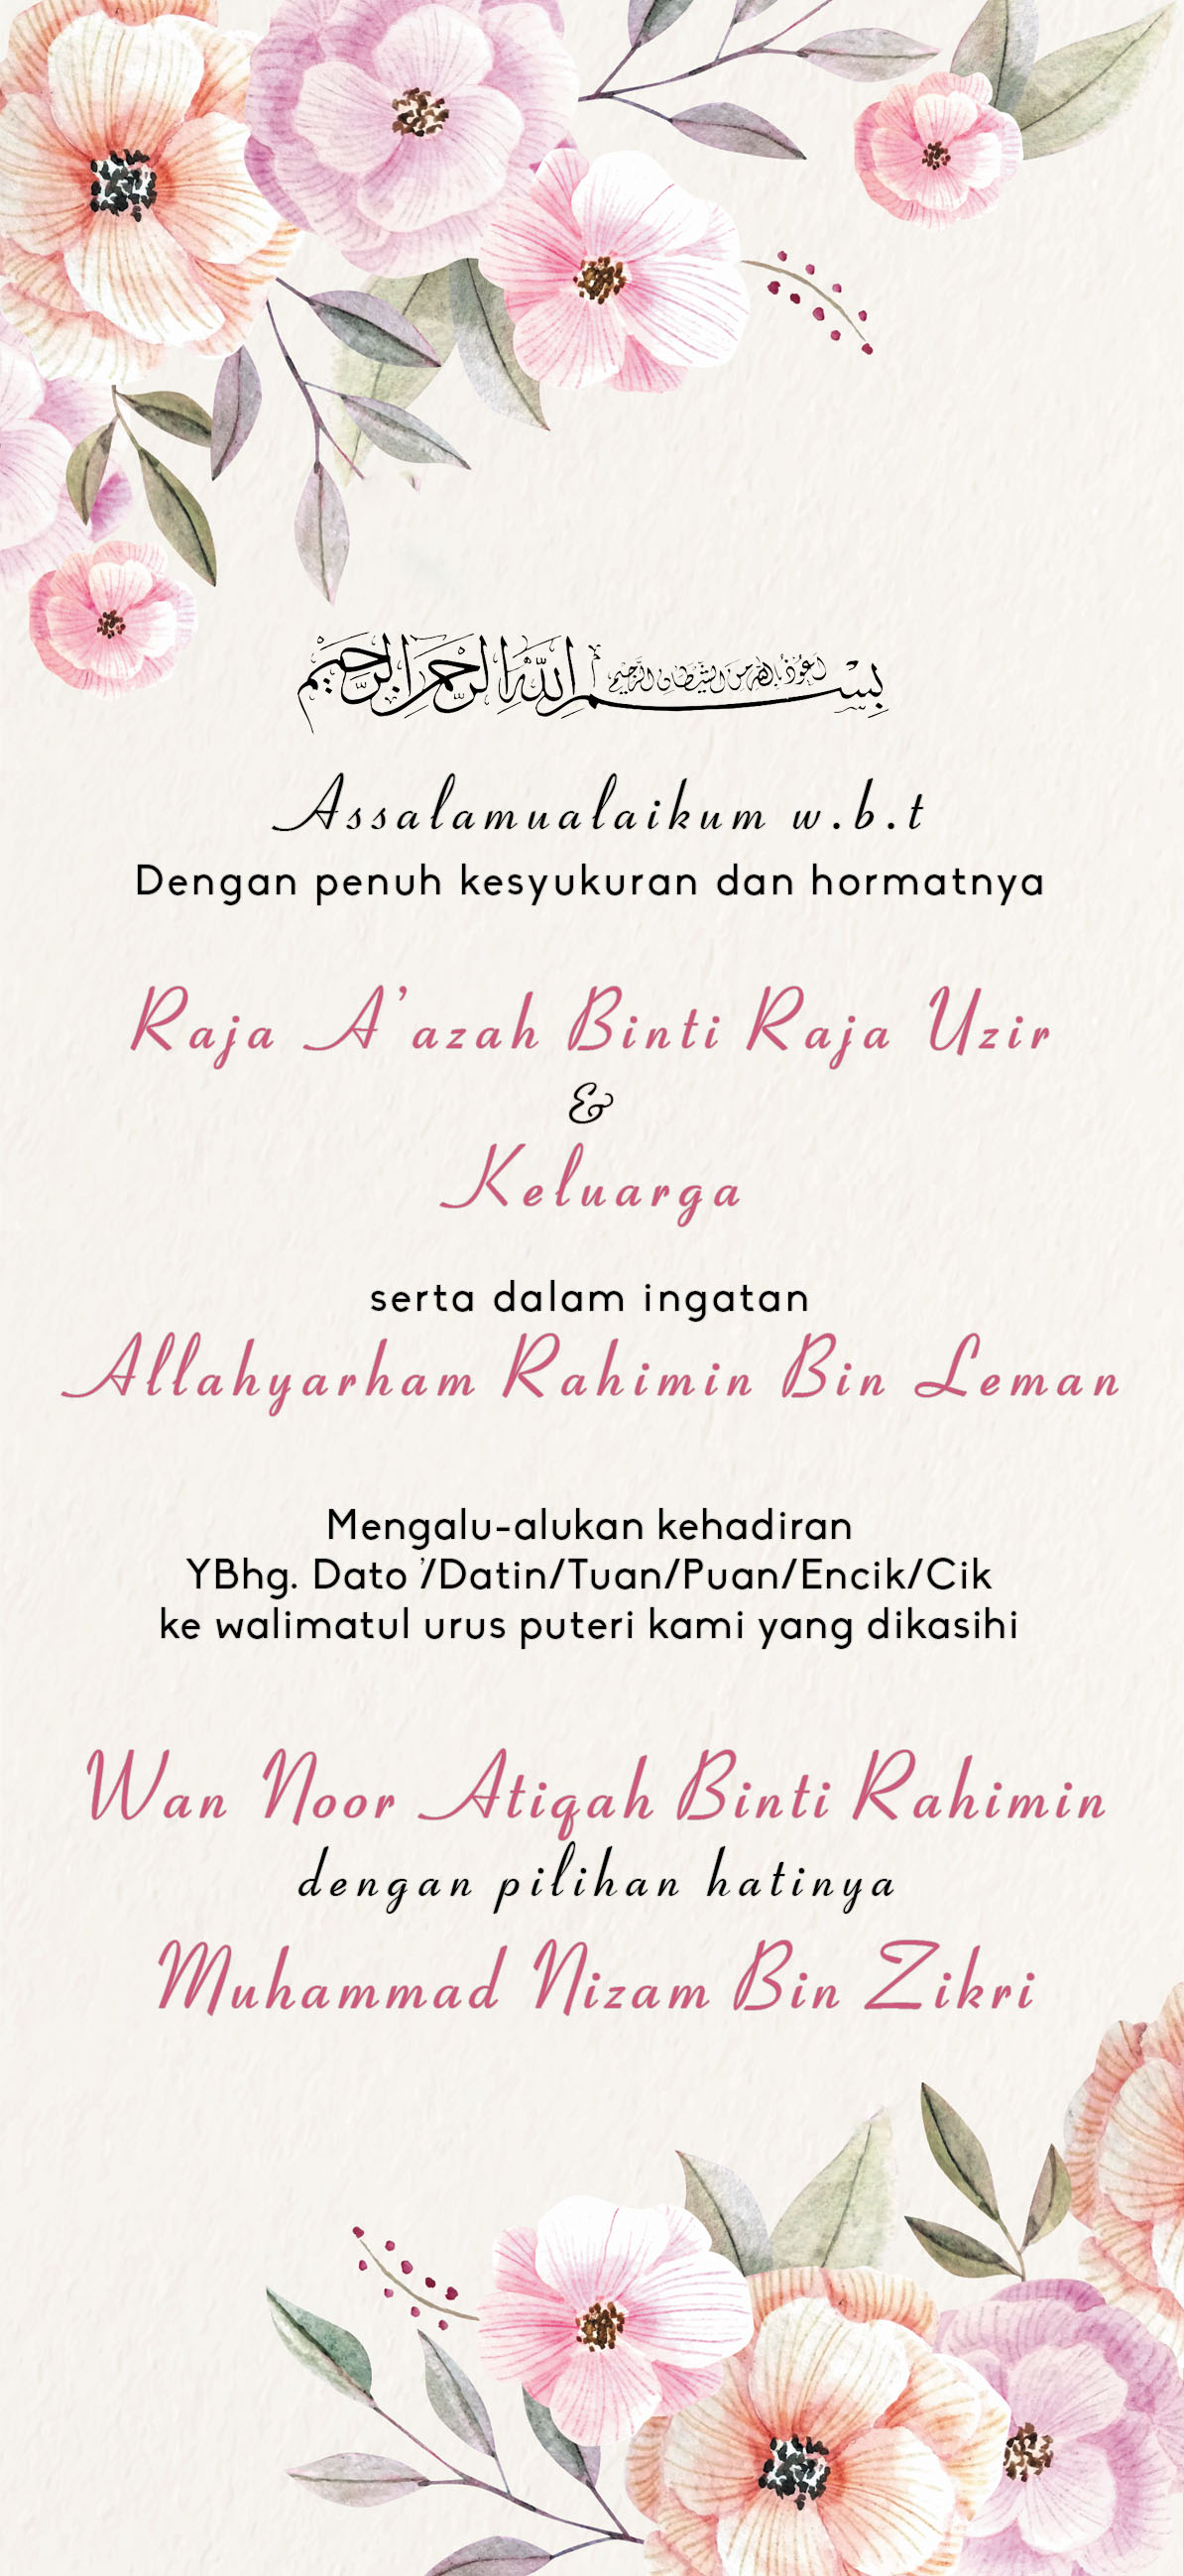 أعوذ بالله من الشيطان الرجيم
بِسْمِ اللَّهِ الرَّحْمَٰنِ الرَّحِيمِ
Assalamualaikum w.b.t
Dengan penuh kesyukuran dan hormatnya
Raja A'azah Binti Raja Uzir
&
Keluarga
serta dalam ingatan
Allahyarham Rahimin Bin Leman
Mengalu-alukan kehadiran
YBhg. Dato'/Datin/Tuan/Puan/Encik/Cik
ke walimatul urus puteri kami yang dikasihi
Wan Noor Atiqah Binti Rahimin
dengan pilihan hatinya
Muhammad Nizam Bin Zikri